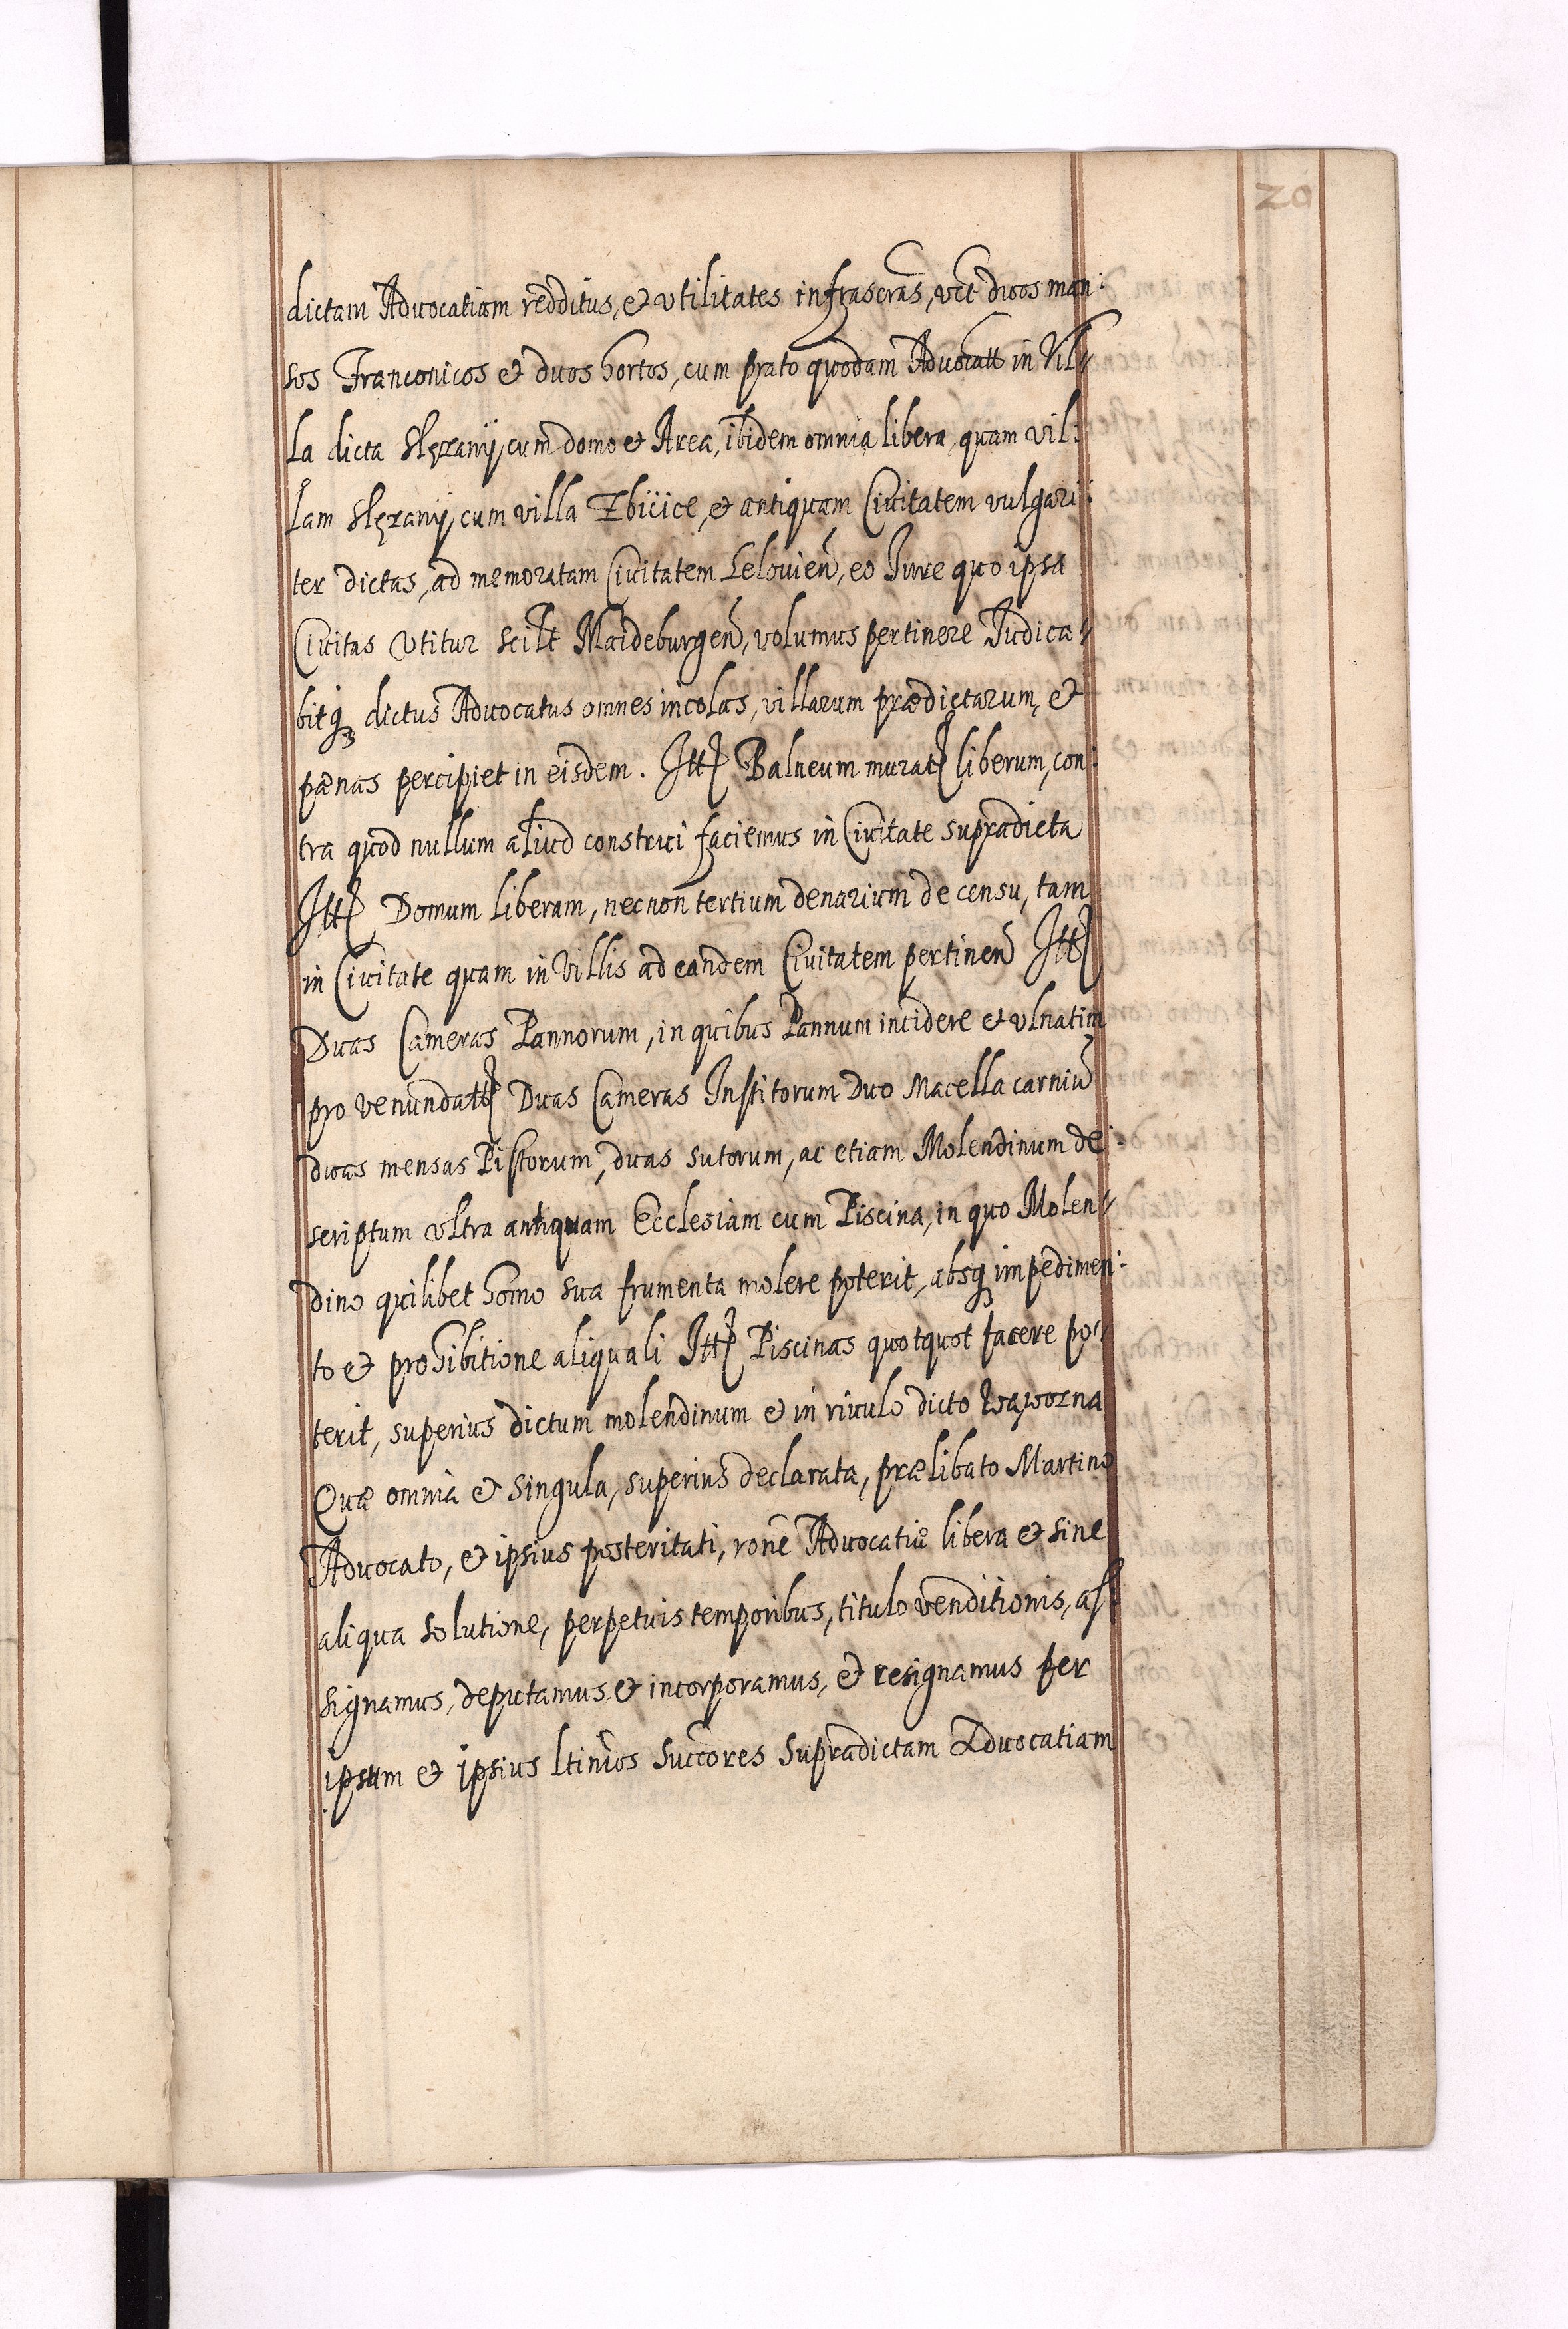 20
dictam Advocatiam redditus, et vtilitates infrascras, vct duos man:
sos Franconicos et duos hortos, cum prato quodam Advocatt in Vil-
la dicta Slęzany, cum domo et Area, ibidem omnia libera, quam vil:
lam Slęzany, cum villa Zbiiice, et antiquam Civitatem vulgari:
ter dictas, ad memoratam Civitatem Lelovien, eo Jure quo ipsa
Civitas vtitur scilt Maideburgen, volumus pertinere Judica-
bitq dictus Advocatus omnes incolas, villarum prædictarum, et
pænas percipiet in eisdem. Itt Balneum murat liberum, con:
tra quod nullum aliud construi faciemus in Civitate supradicta
Itt Domum liberam, necnon tertium denarium de censu, tam
in Civitate quam in Villis ad eandem Civitatem pertinen Itt
Duas Cameras Pannorum, in quibus Pannum incidere et vlnatim
pro venundatt Duas Cameras Institorum Duo Macella carniu
duas mensas Pistorum, duas sutorum, ac etiam Molendinum de:
scriptum vltra antiquam Ecclesiam cum Piscina, in quo Molen-
dino quilibet homo sua frumenta molere poterit, absq impedimen:
to et prohibitione aliquali Itt Piscinas quotquot facere po-
terit, superius dictum molendinum et in rivulo dicto Wąworna
Quæ omnia et singula, superius declarata, prælibato Martino
Advocato, et ipsius posteritati, rone Advocatiæ libera et sine
aliqua solutione, perpetuis temporibus, titulo venditionis, as
signamus, deputamus et incorporamus, et resignamus per
ipsum et ipsius ltimos succores supradictam Advocatiam